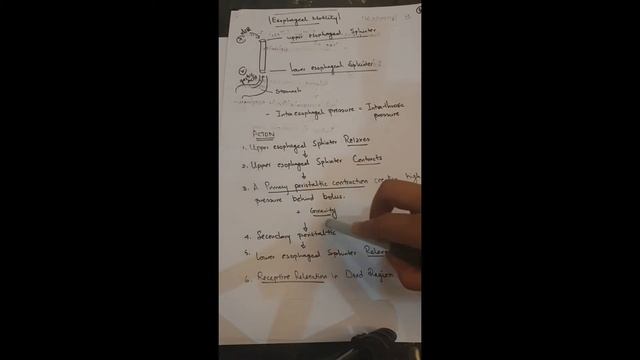 Esophageal Motility
upper esophageal Sphinter
Lower esophageal Sphinter
Stomach
- Intra esophageal pressure = Intrathoracic pressure
ACTION
1. Upper esophageal Sphinter Relaxes
2. Upper esophageal Sphinter Contracts
3. A Primary peristaltic contraction creates high
pressure behind bolus.
+ Gravity
4. Secondary peristaltic
5. Lower esophageal Sphinter Relaxes
6. Receptive Relaxation in Orad Region